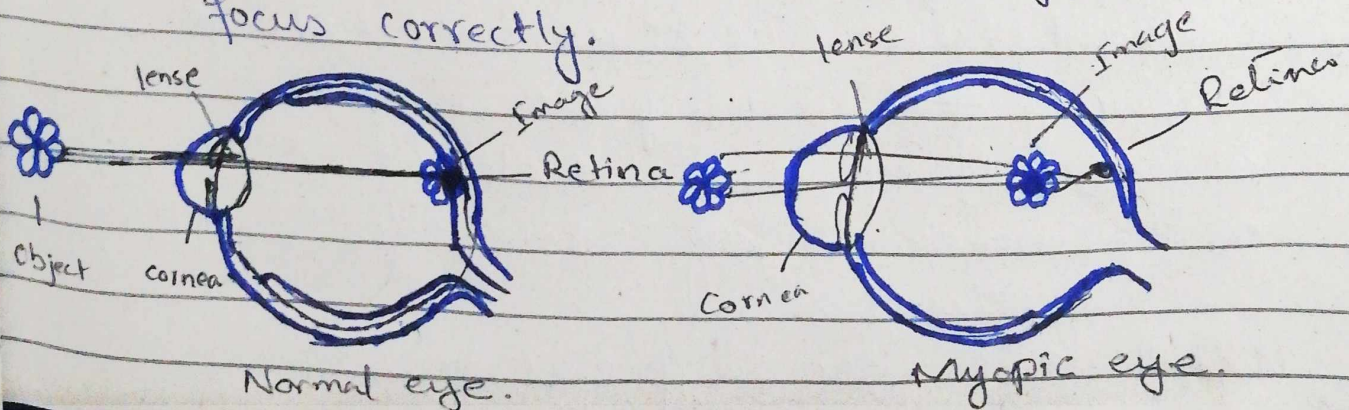 focus correctly.
lense
Image
Retina
Object
cornea
Normal eye.
lense
Image
Retina
Cornea
Myopic eye.